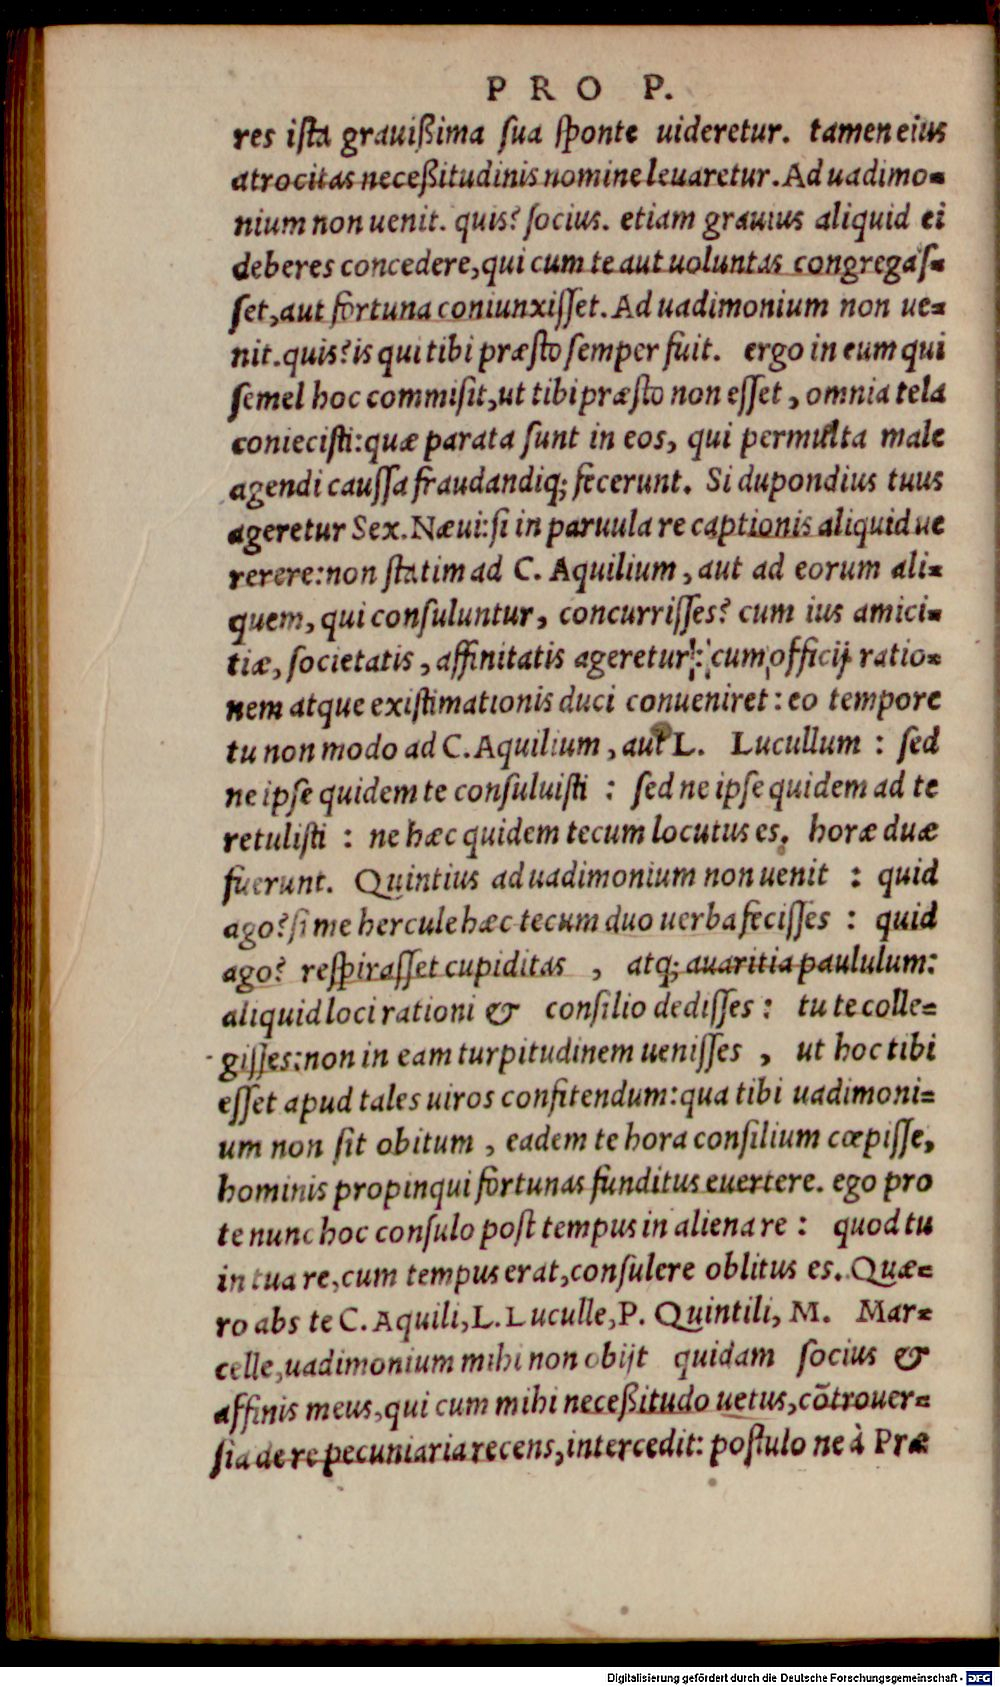 PRO P.
res ista grauißima sua sponte uideretur. tamen eius
atrocitas neceßitudinis nomine leuaretur. Ad uadimo=
nium non uenit. quis? socius. etiam grauius aliquid ei
deberes concedere, qui cum te aut uoluntas congregas=
set, aut fortuna coniunxisset. Ad uadimonium non ue=
nit. quis? is qui tibi præsto semper fuit. ergo in eum qui
semel hoc commisit, ut tibi præsto non esset, omnia tela
coniecisti: quæ parata sunt in eos, qui permulta male
agendi caussa fraudandiq; fecerunt. Si dupondius tuus
ageretur Sex. Næui: si in paruula re captionis aliquid ue
rerere: non statim ad C. Aquilium, aut ad eorum ali=
quem, qui consuluntur, concurrisses? cum ius amici=
tiæ, societatis, affinitatis ageretur: cum officij ratio=
nem atque existimationis duci conueniret: eo tempore
tu non modo ad C. Aquilium, aut L. Lucullum: sed
ne ipse quidem te consuluisti: sed ne ipse quidem ad te
retulisti: ne hæc quidem tecum locutus es. horæ duæ
fuerunt. Quintius ad uadimonium non uenit: quid
ago? si me hercule hæc tecum duo uerba fecisses: quid
ago? respirasset cupiditas, atq; auaritia paululum:
aliquid loci rationi & consilio dedisses: tu te colle=
gisses: non in eam turpitudinem uenisses, ut hoc tibi
esset apud tales uiros confitendum: qua tibi uadimoni=
um non sit obitum, eadem te hora consilium cœpisse,
hominis propinqui fortunas funditus euertere. ego pro
te nunc hoc consulo post tempus in aliena re: quod tu
in tua re, cum tempus erat, consulere oblitus es. Quæ=
ro abs te C. Aquili, L. Luculle, P. Quintili, M. Mar=
celle, uadimonium mihi non obijt quidam socius &
affinis meus, qui cum mihi neceßitudo uetus, cõtrouer=
sia de re pecuniaria recens, intercedit: postulo ne à Præ
Digitalisierung gefördert durch die Deutsche Forschungsgemeinschaft - DFG